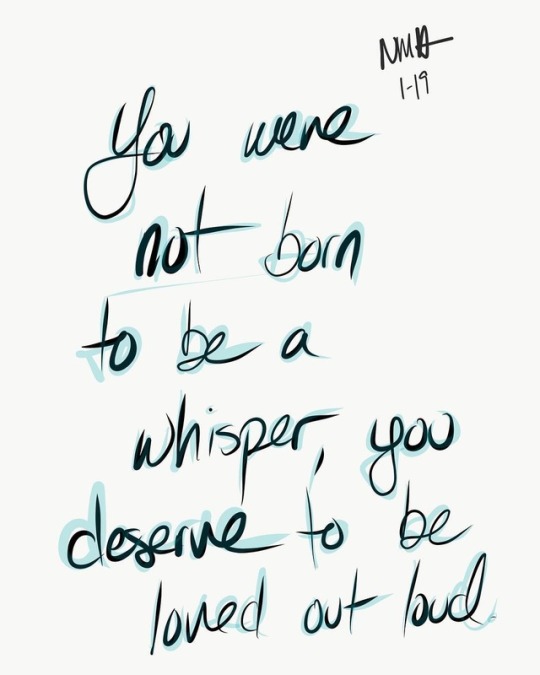 NMA
1-19
You were
not born
to be a
whisper, you
deserve to be
loved out loud.